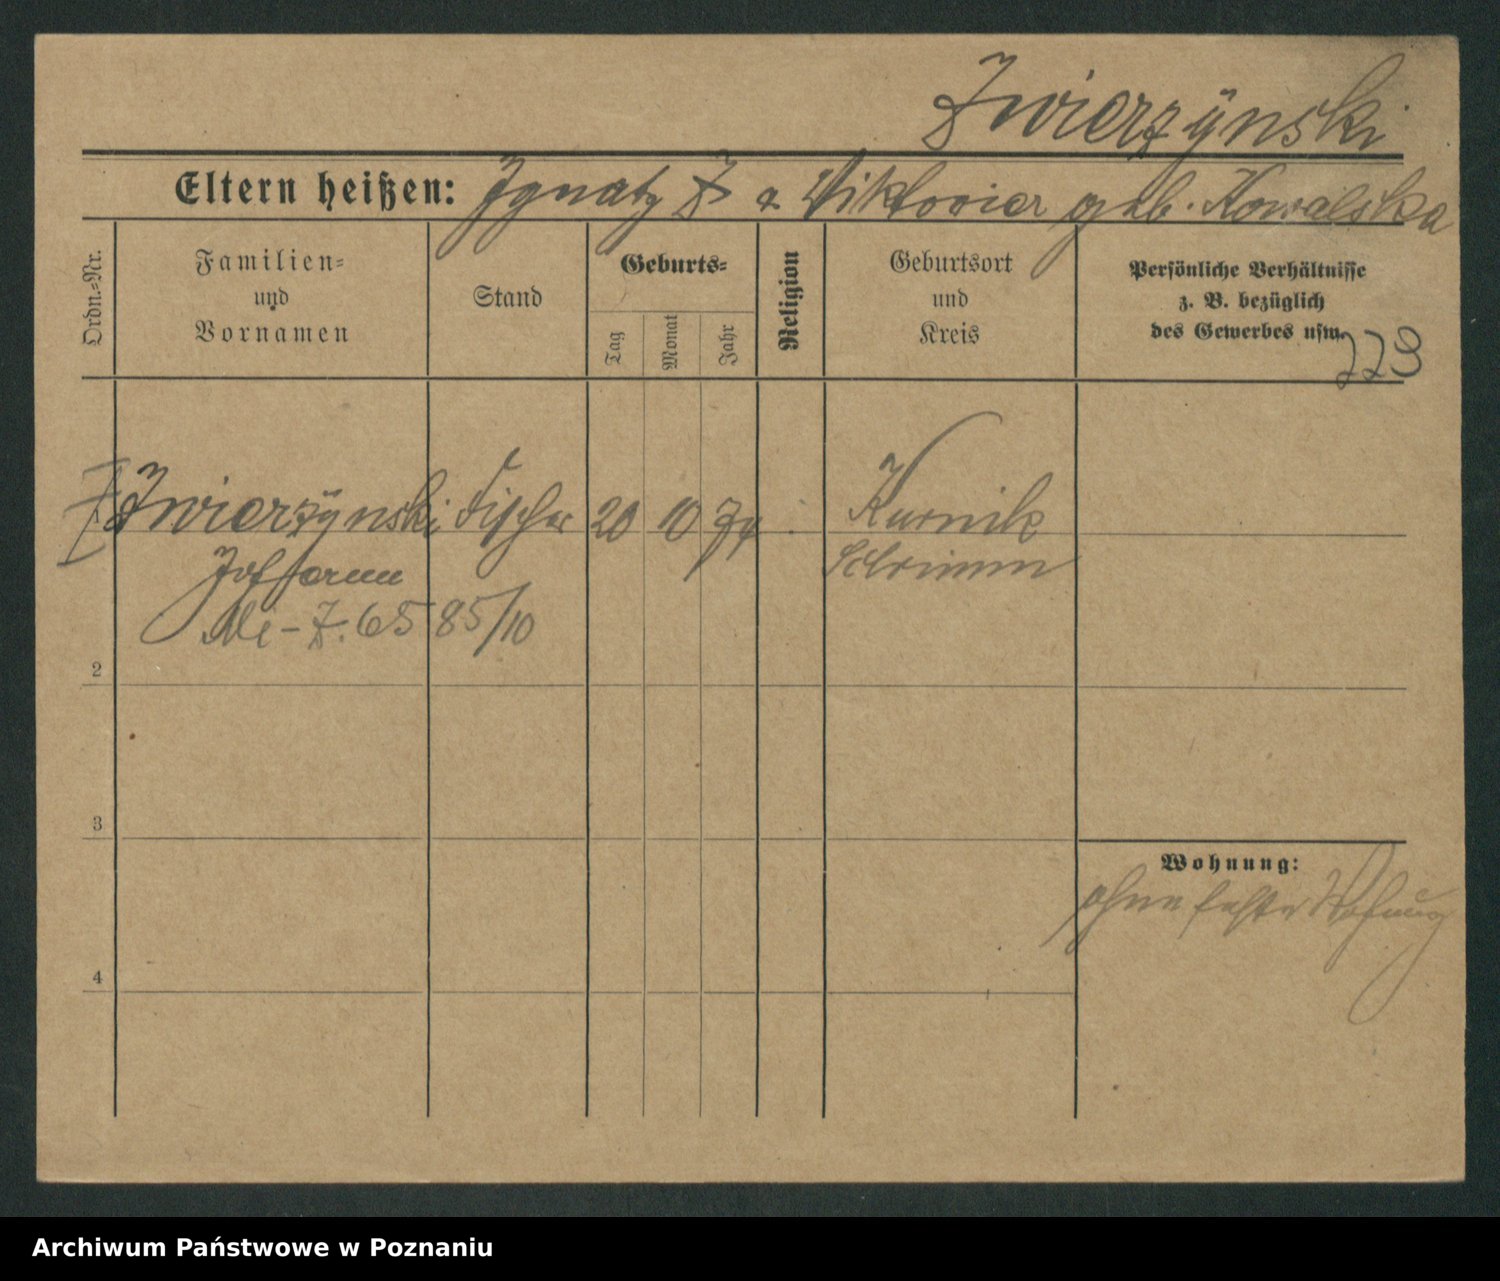 Zwierzÿnski
Eltern heißen: Ignatz Z u Viktoria geb. Kowalska
Ordn.=Nr.
Familien=
und
Vornamen
Stand
Geburts=
Tag
Monat
Jahr
Religion
Geburtsort
und
Kreis
Persönliche Verhältnisse
z. B. bezüglich
des Gewerbes usw.
223
1 Zwierzÿnski Fischer 20 10 74 Kurnik
Johann Schrimm
Z. 6585/10
2
3
Wohnung:
ohne feste Wohnung
4
Archiwum Państwowe w Poznaniu